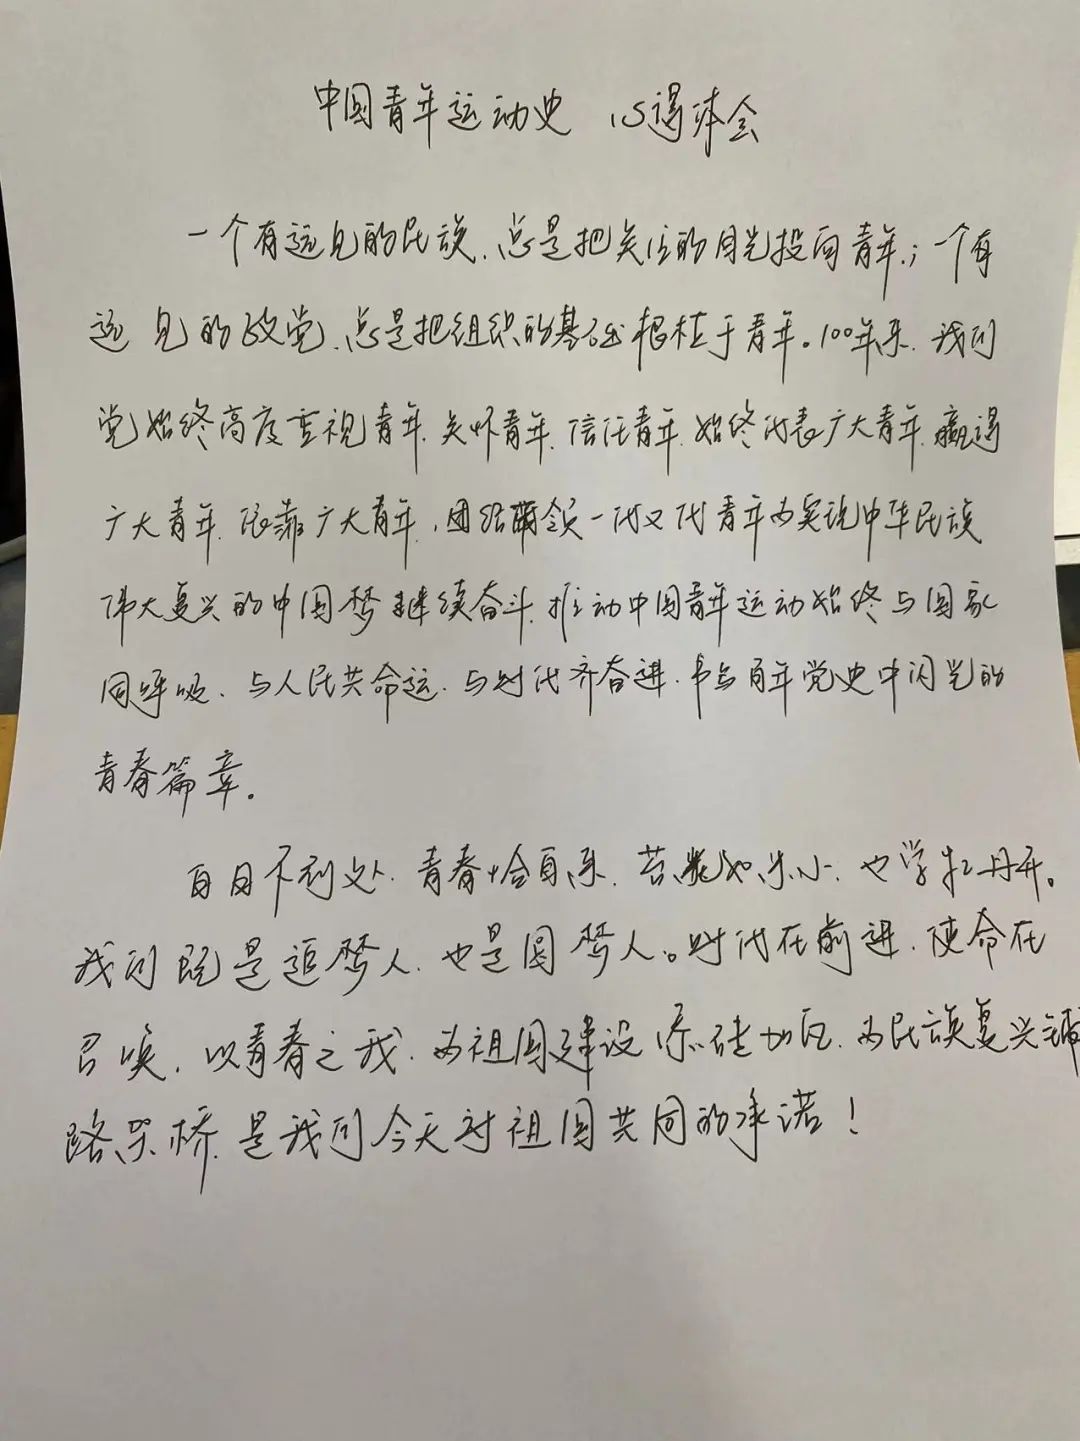 中国青年运动史 心得体会
一个有远见的民族、总是把关注的目光投向青年；一个有
远见的政党、总是把组织的基础根植于青年。100年来、我们
党始终高度重视青年、关怀青年、信任青年、始终代表广大青年、赢得
广大青年、依靠广大青年，团结带领一代又代青年为实现中华民族
伟大复兴的中国梦继续奋斗、推动中国青年运动始终与国家
同呼吸、与人民共命运、与时代齐奋进、书写百年党史中闪光的
青春篇章。
白日不到处、青春恰自来、苔花如米小、也学牡丹开。
我们既是追梦人、也是圆梦人。时代在前进、使命在
召唤、以青春之我、为祖国建设添砖加瓦、为民族复兴铺
路架桥、是我们今天对祖国共同的承诺！